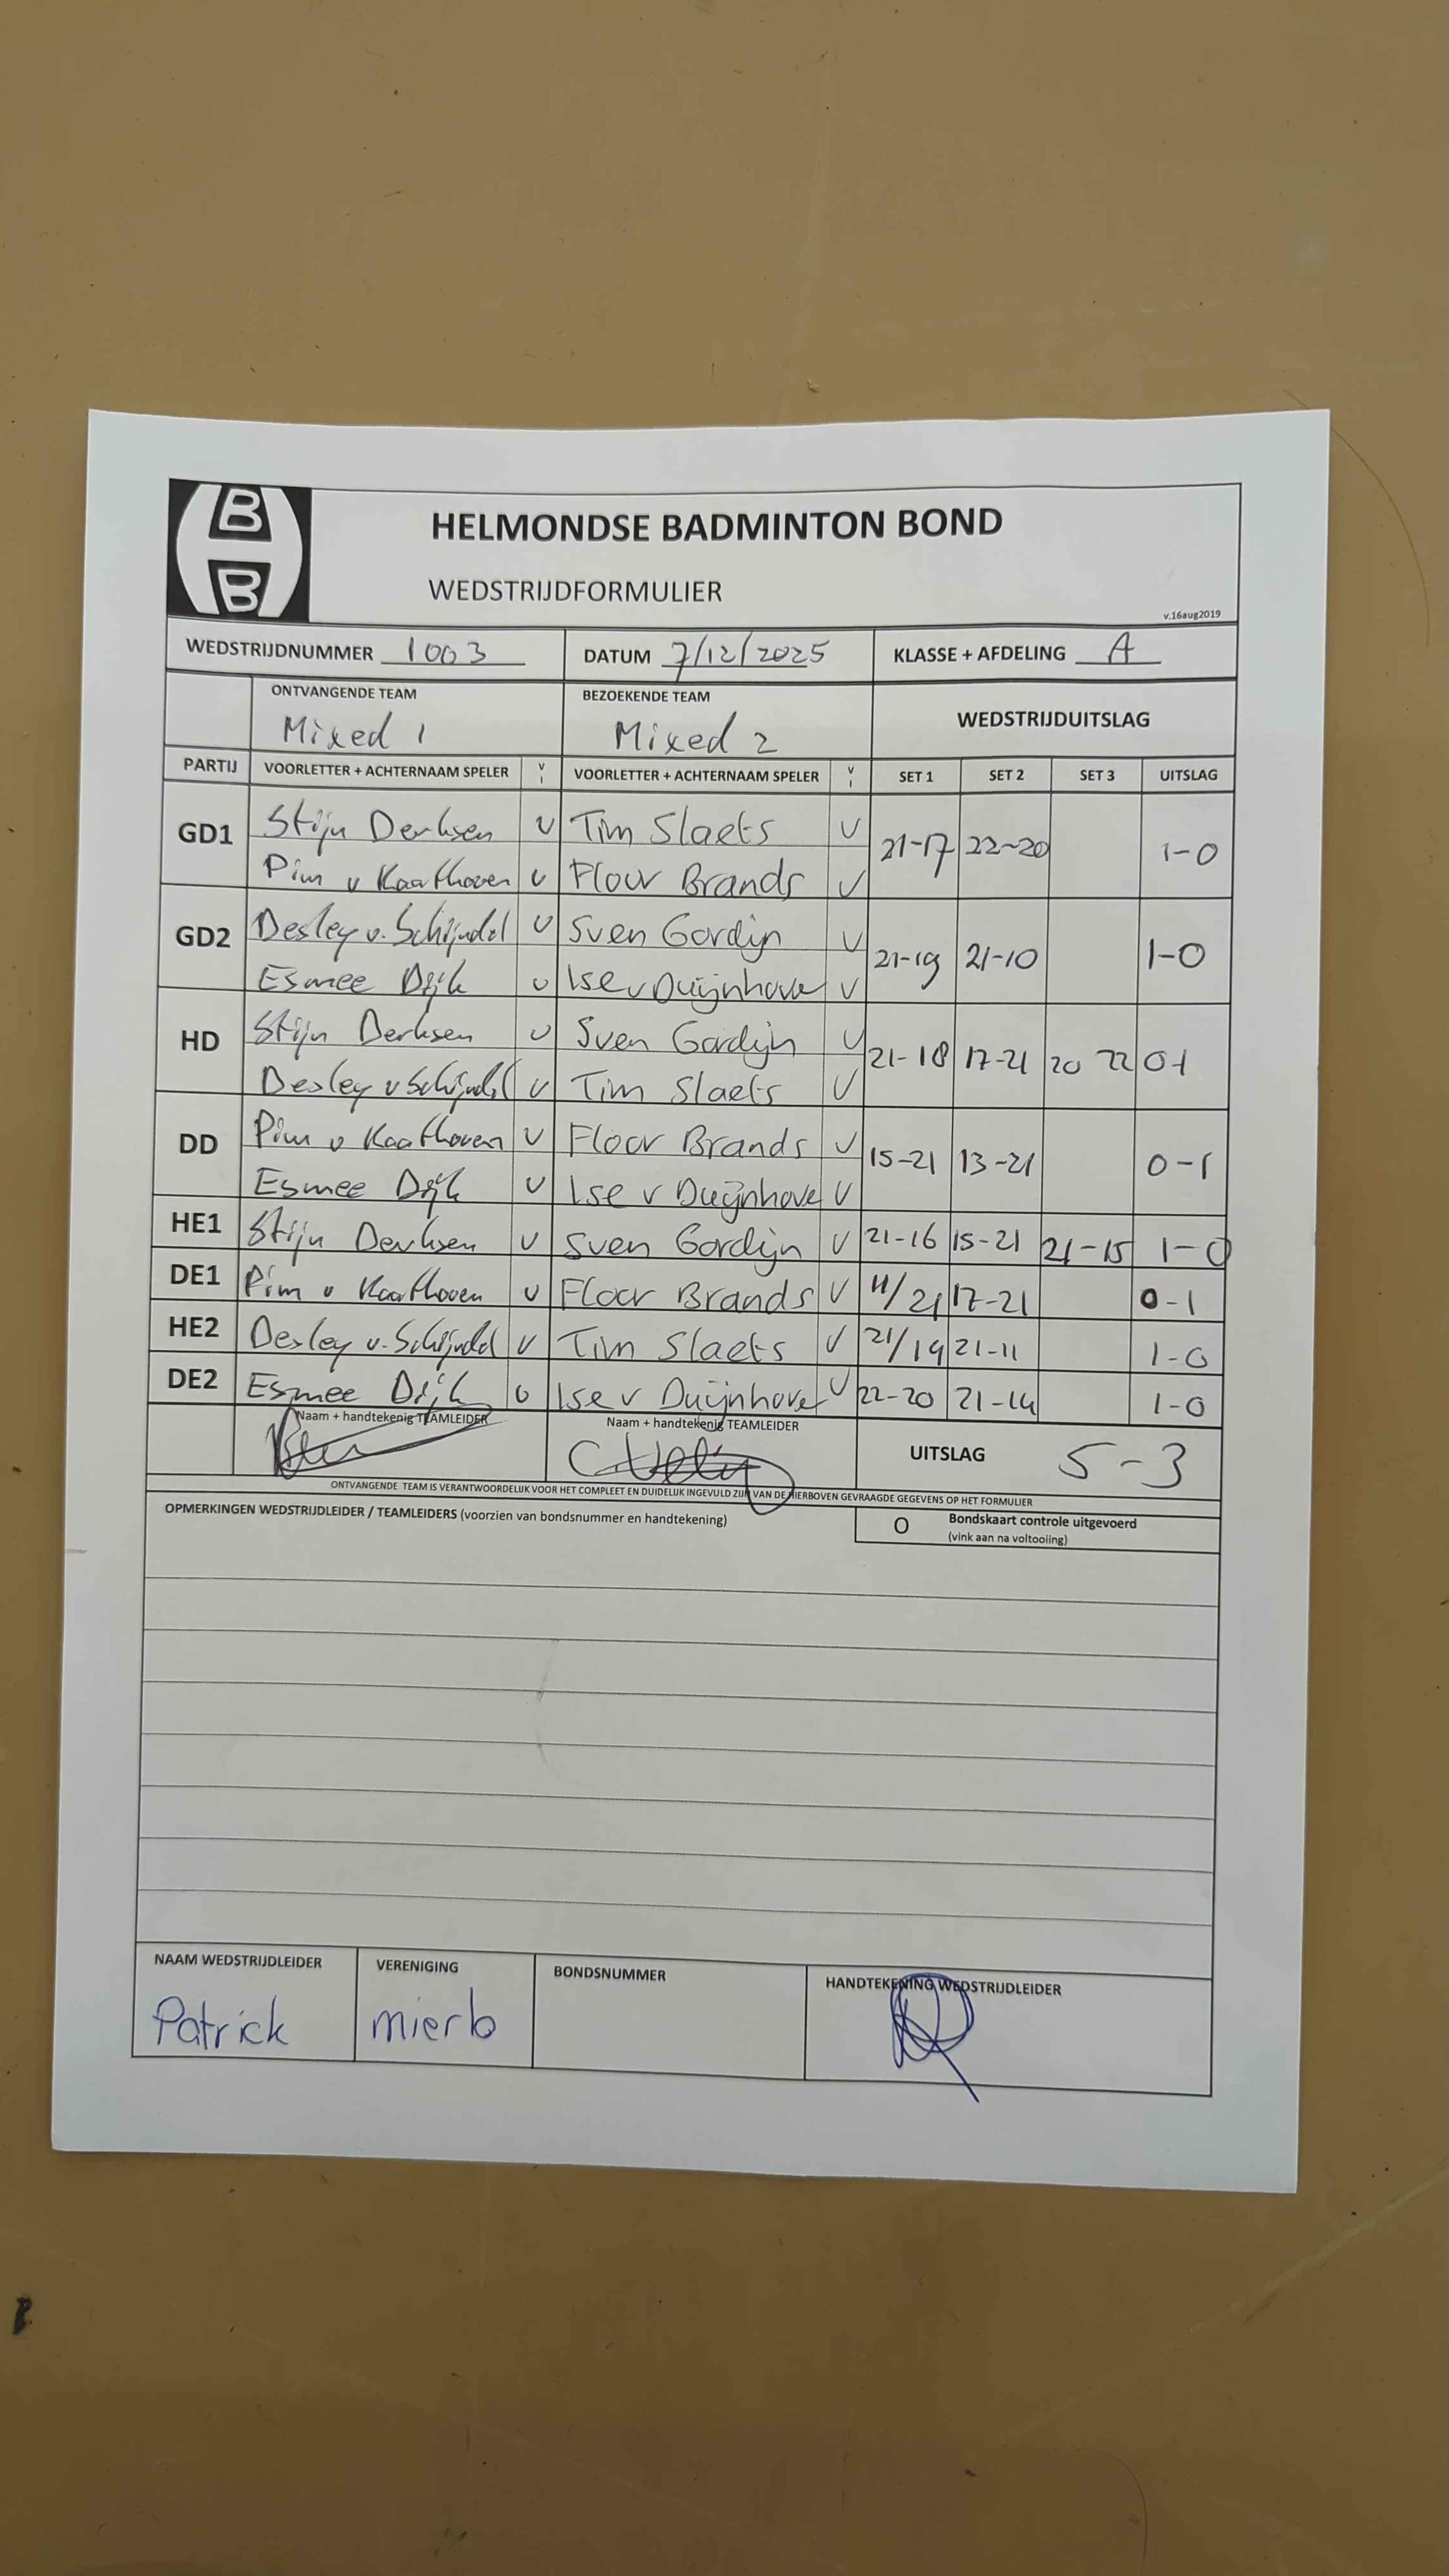 B
B
HELMONDSE BADMINTON BOND
WEDSTRIJDFORMULIER
v.16aug2019
WEDSTRIJDNUMMER 1003 DATUM 7/12/2025 KLASSE + AFDELING A
ONTVANGENDE TEAM BEZOEKENDE TEAM WEDSTRIJDUITSLAG
Mixed 1 Mixed 2
PARTIJ VOORLETTER + ACHTERNAAM SPELER V I VOORLETTER + ACHTERNAAM SPELER V I SET 1 SET 2 SET 3 UITSLAG
GD1 Stijn Derksen V Tim Slaets V 21-17 22-20 1-0
Pim v Kaathoven V Floor Brands V
GD2 Desley v. Schijndel V Sven Gordijn V 21-19 21-10 1-0
Esmee Dijk V Ise v Duijnhove V
HD Stijn Derksen V Sven Gordijn V 21-18 17-21 20 22 0-1
Desley v Schijndel V Tim Slaets V
DD Pim v Kaathoven V Floor Brands V 15-21 13-21 0-1
Esmee Dijk V Ise v Duijnhove V
HE1 Stijn Derksen V Sven Gordijn V 21-16 15-21 21-15 1-0
DE1 Pim v Kaathoven V Floor Brands V 11/21 17-21 0-1
HE2 Desley v. Schijndel V Tim Slaets V 21/19 21-11 1-0
DE2 Esmee Dijk V Ise v Duijnhove V 22-20 21-14 1-0
Naam + handtekenig TEAMLEIDER Naam + handtekenig TEAMLEIDER UITSLAG 5-3
ONTVANGENDE TEAM IS VERANTWOORDELIJK VOOR HET COMPLEET EN DUIDELIJK INGEVULD ZIJN VAN DE HIERBOVEN GEVRAAGDE GEGEVENS OP HET FORMULIER
OPMERKINGEN WEDSTRIJDLEIDER / TEAMLEIDERS (voorzien van bondsnummer en handtekening) O Bondskaart controle uitgevoerd
(vink aan na voltooiing)
NAAM WEDSTRIJDLEIDER VERENIGING BONDSNUMMER HANDTEKENING WEDSTRIJDLEIDER
Patrick mierlo